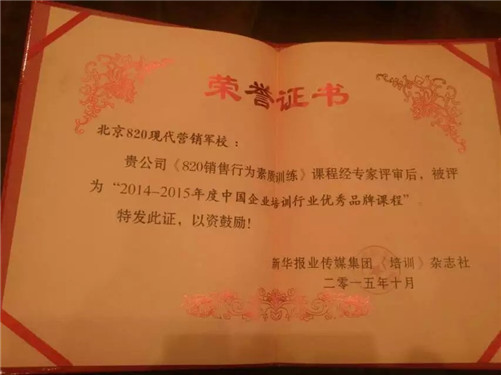 荣誉证书
北京820现代营销军校：
贵公司《820销售行为素质训练》课程经专家评审后，被评
为“2014–2015年度中国企业培训行业优秀品牌课程”
特发此证，以资鼓励！
新华报业传媒集团《培训》杂志社
二零一五年十月